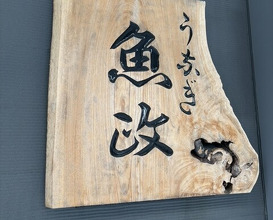 うなぎ
魚政